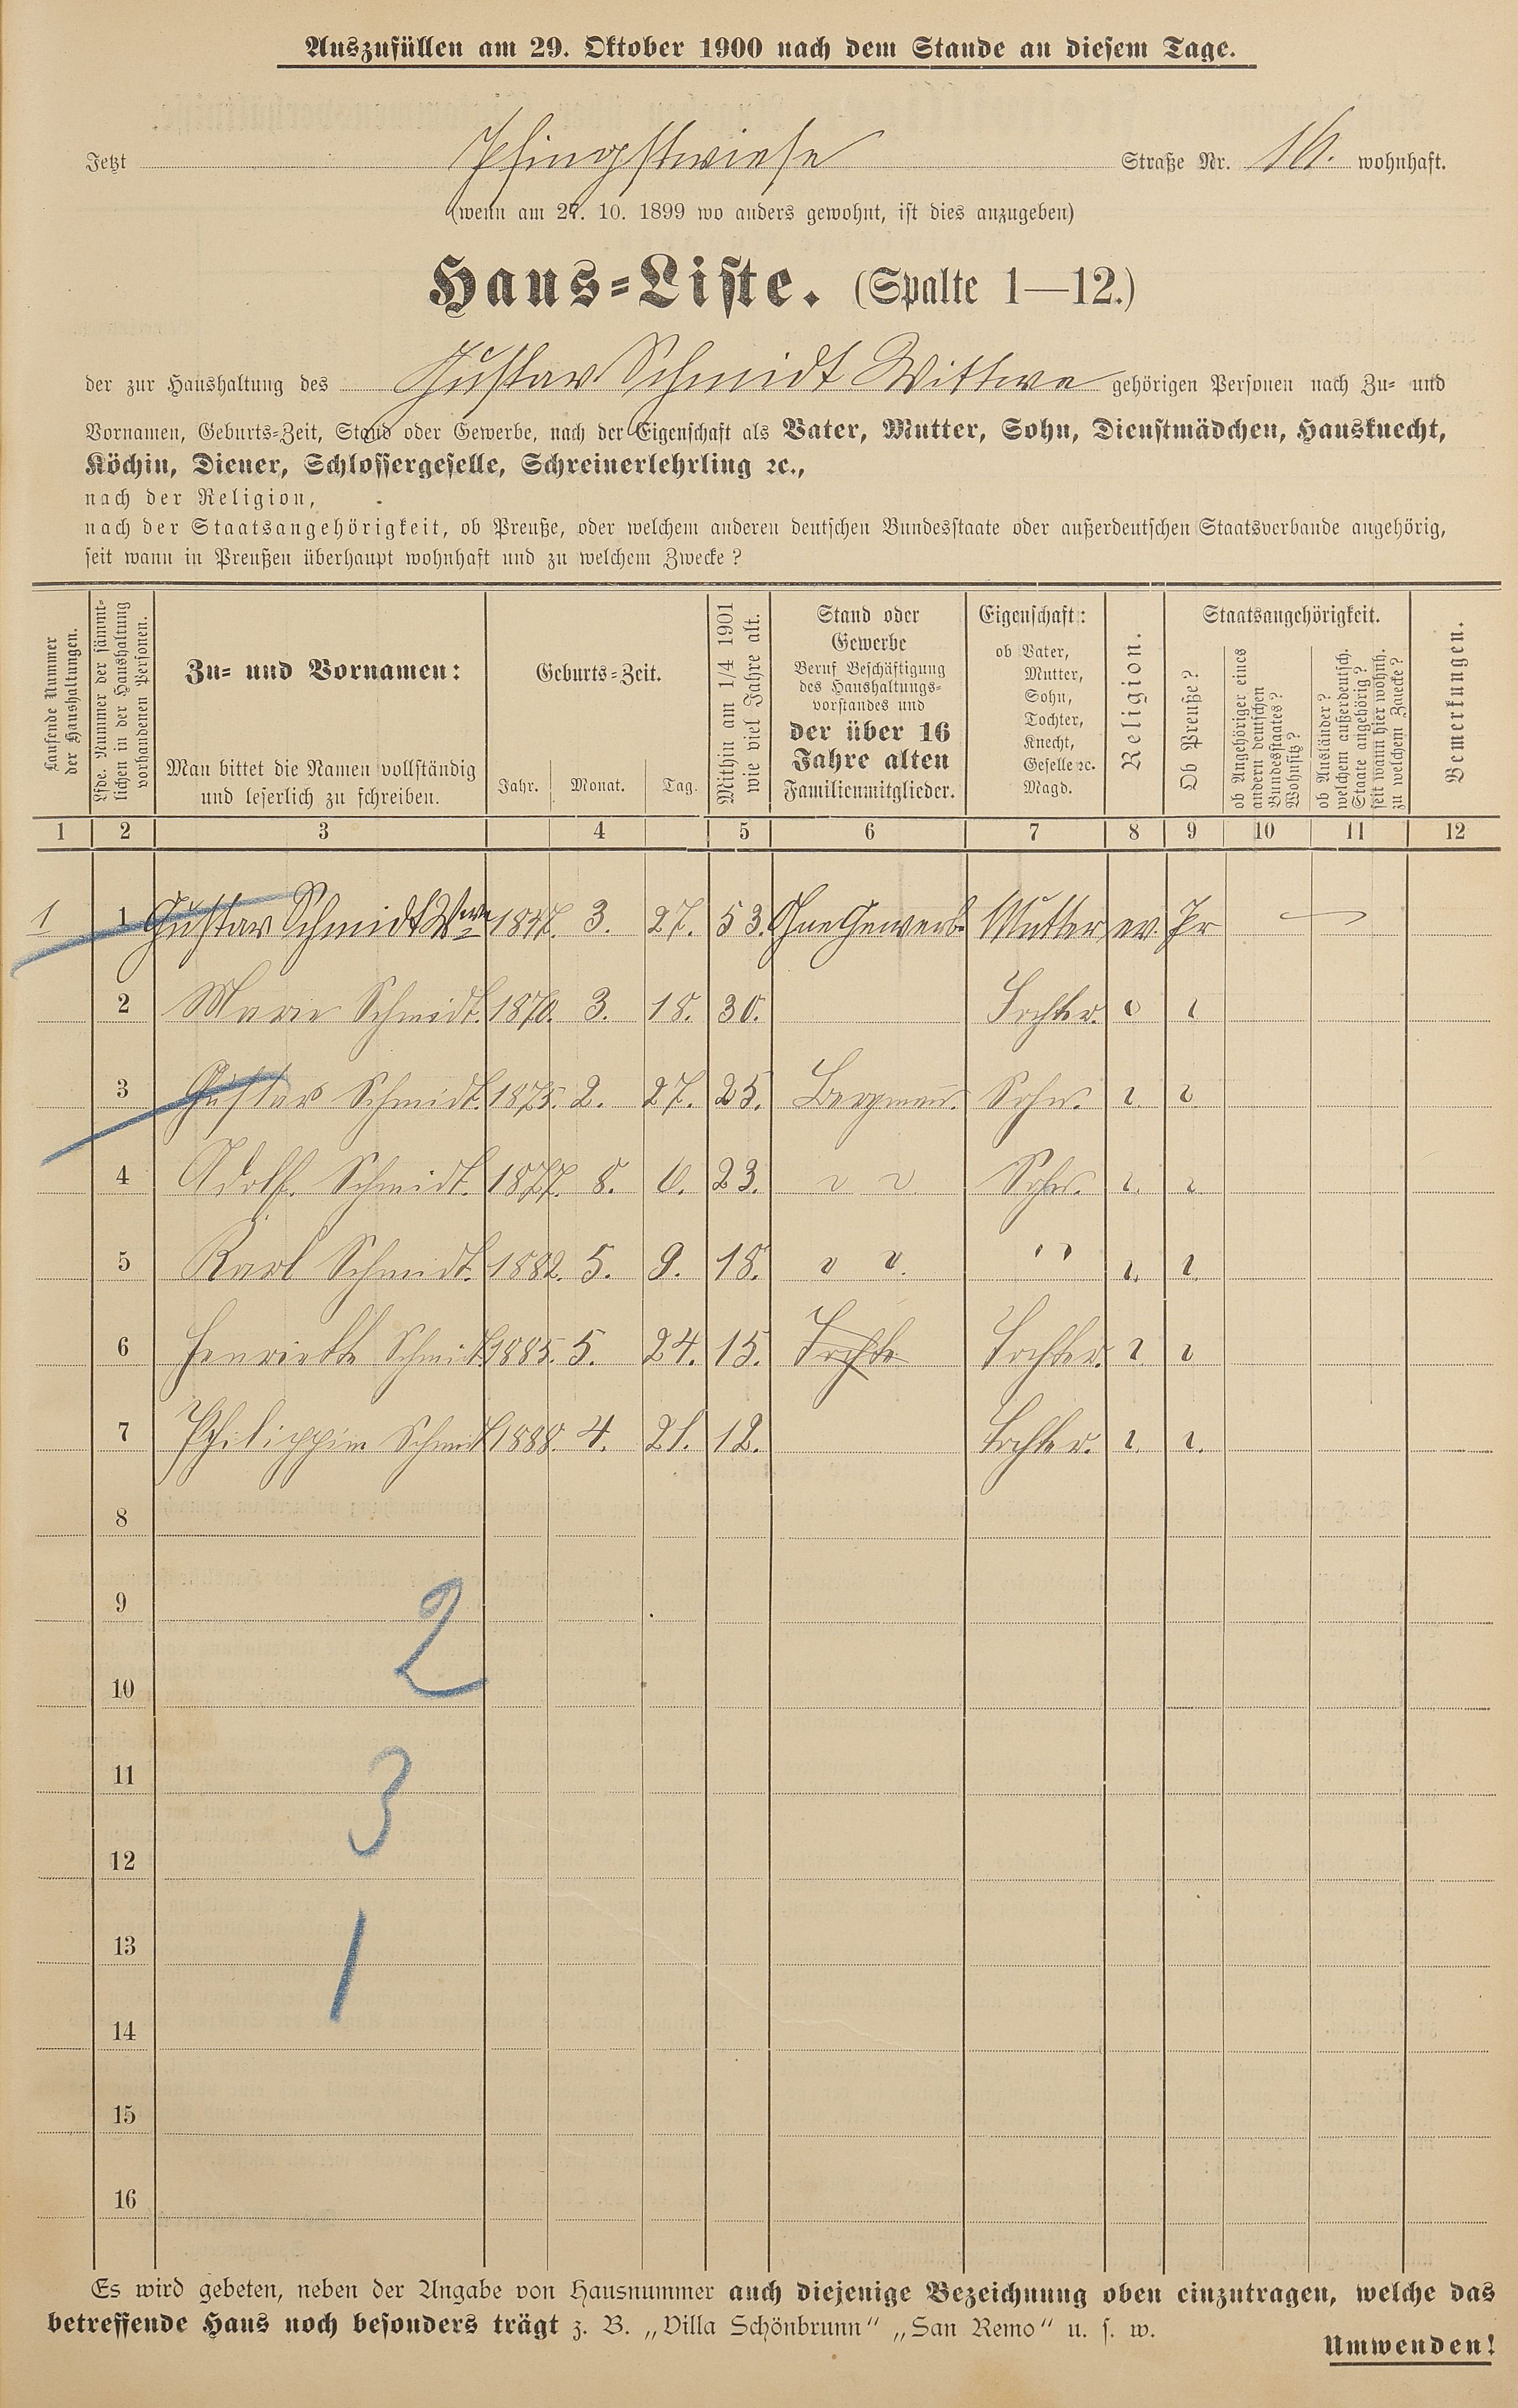 Auszufüllen am 29. Oktober 1900 nach dem Stande an diesem Tage.
Jetzt Pfingstwiese Straße Nr. 16. wohnhaft.
(wenn am 27. 10. 1899 wo anders gewohnt, ist dies anzugeben)
Haus-Liste. (Spalte 1—12.)
der zur Haushaltung des Gustav Schmidt Wittwe gehörigen Personen nach Zu- und
Vornamen, Geburts-Zeit, Stand oder Gewerbe, nach der Eigenschaft als Vater, Mutter, Sohn, Dienstmädchen, Hausknecht,
Köchin, Diener, Schlossergeselle, Schreinerlehrling ꝛc.,
nach der Religion,
nach der Staatsangehörigkeit, ob Preuße, oder welchem anderen deutschen Bundesstaate oder außerdeutschen Staatsverbande angehörig,
seit wann in Preußen überhaupt wohnhaft und zu welchem Zwecke?
Laufende Nummer
der Haushaltungen.
Lfde. Nummer der sämmt-
lichen in der Haushaltung
vorhandenen Personen.
Zu- und Vornamen:
Man bittet die Namen vollständig
und leserlich zu schreiben.
Geburts-Zeit.
Jahr. Monat. Tag.
Mithin am 1/4 1901
wie viel Jahre alt.
Stand oder
Gewerbe
Beruf Beschäftigung
des Haushaltungs-
vorstandes und
der über 16
Jahre alten
Familienmitglieder.
Eigenschaft:
ob Vater,
Mutter,
Sohn,
Tochter,
Knecht,
Geselle ꝛc.
Magd.
Religion.
Staatsangehörigkeit.
Ob Preuße?
ob Angehöriger eines
andern deutschen
Bundesstaates?
Wohnsitz?
ob Ausländer?
welchem außerdeutsch.
Staate angehörig?
seit wann hier wohnh.
zu welchem Zwecke?
Bemerkungen.
1 2 3 4 5 6 7 8 9 10 11 12
1 1 Gustav Schmidt Wwe 1847. 3. 27. 53. Ohne Gewerb. Mutter ev. Pr —
2 Marie Schmidt. 1870. 3. 18. 30. Tochter. " "
3 Gustav Schmidt. 1875. 2. 27. 25. Bergman. Sohn. " "
4 Adolf. Schmidt. 1877. 8. 6. 23. " " Sohn. " "
5 Karl Schmidt. 1882. 5. 9. 18. " " " " " "
6 Henriette Schmidt 1885. 5. 24. 15. Tochte Tochter. " "
7 Philippine Schmidt 1888. 4. 21. 12. Tochter. " "
8
9
2
10
11
3
12
13
1
14
15
16
Es wird gebeten, neben der Angabe von Hausnummer auch diejenige Bezeichnung oben einzutragen, welche das
betreffende Haus noch besonders trägt z. B. „Villa Schönbrunn“ „San Remo“ u. s. w.
Umwenden!